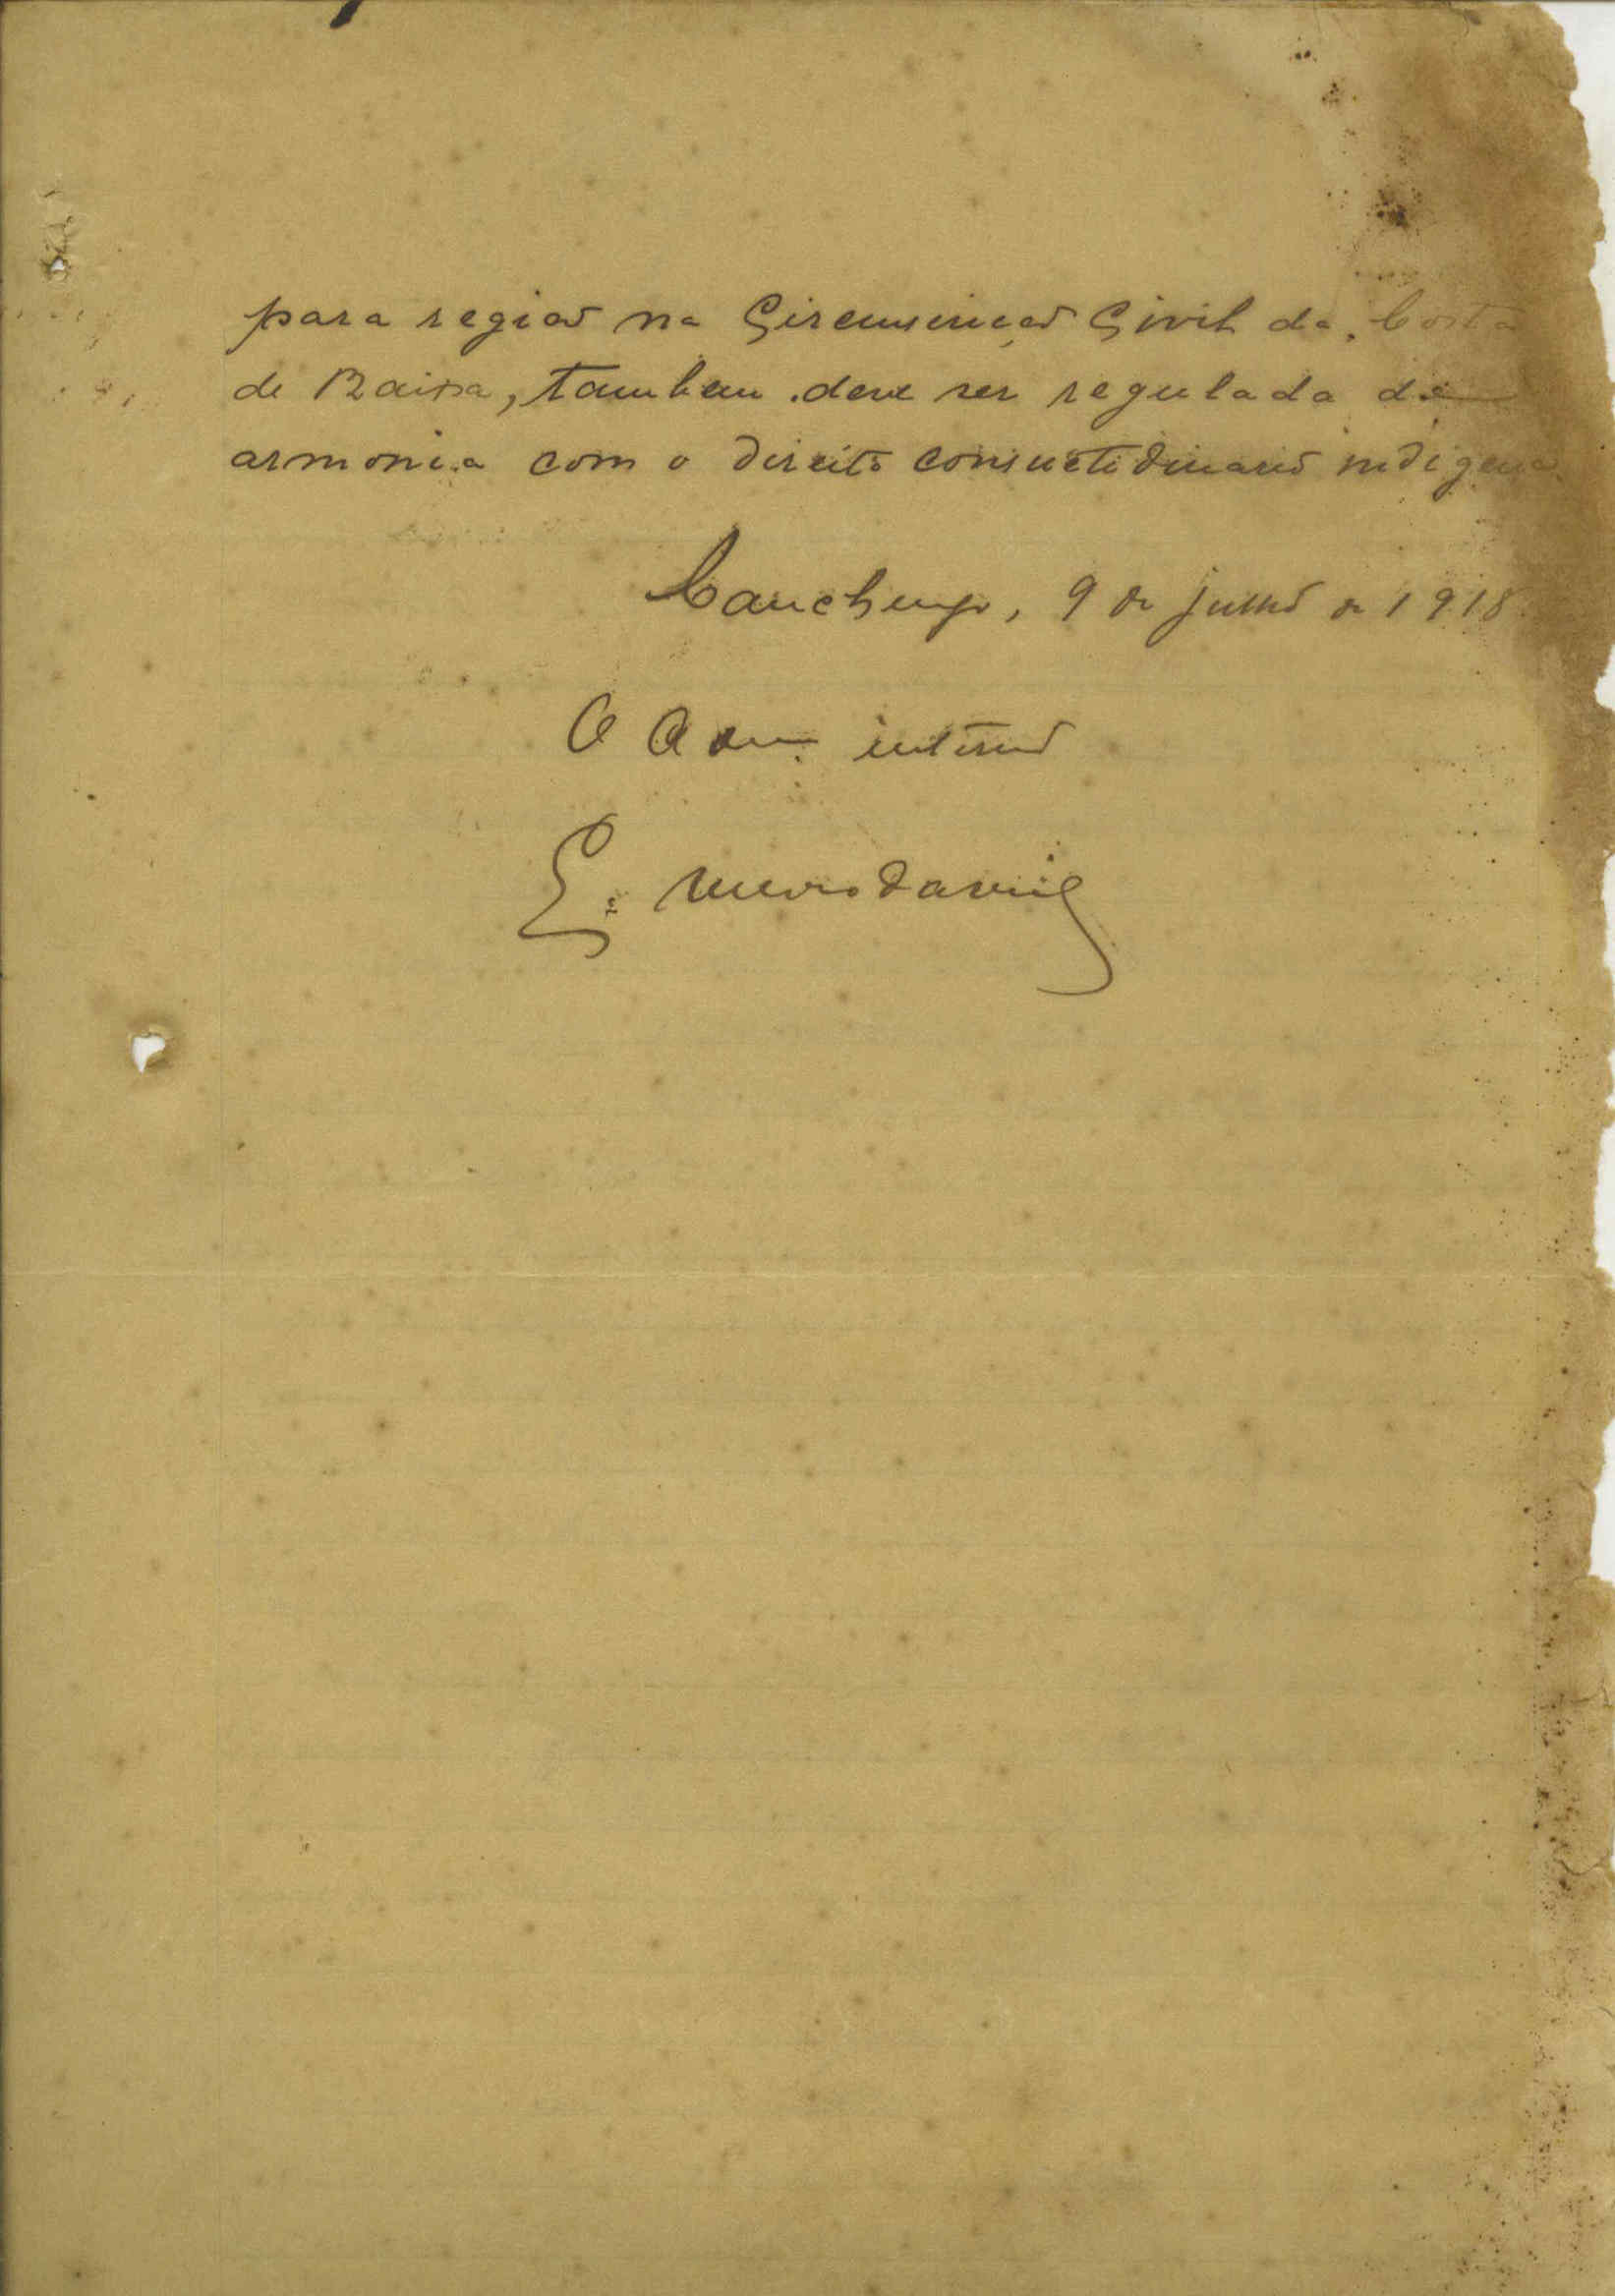 para região na Circunscrição Civil da Costa
de Baixo, tambem deve ser regulada de
armonia com o direito consuetudinario indigena
Canchungo, 9 de julho de 1918
O Adm. interino